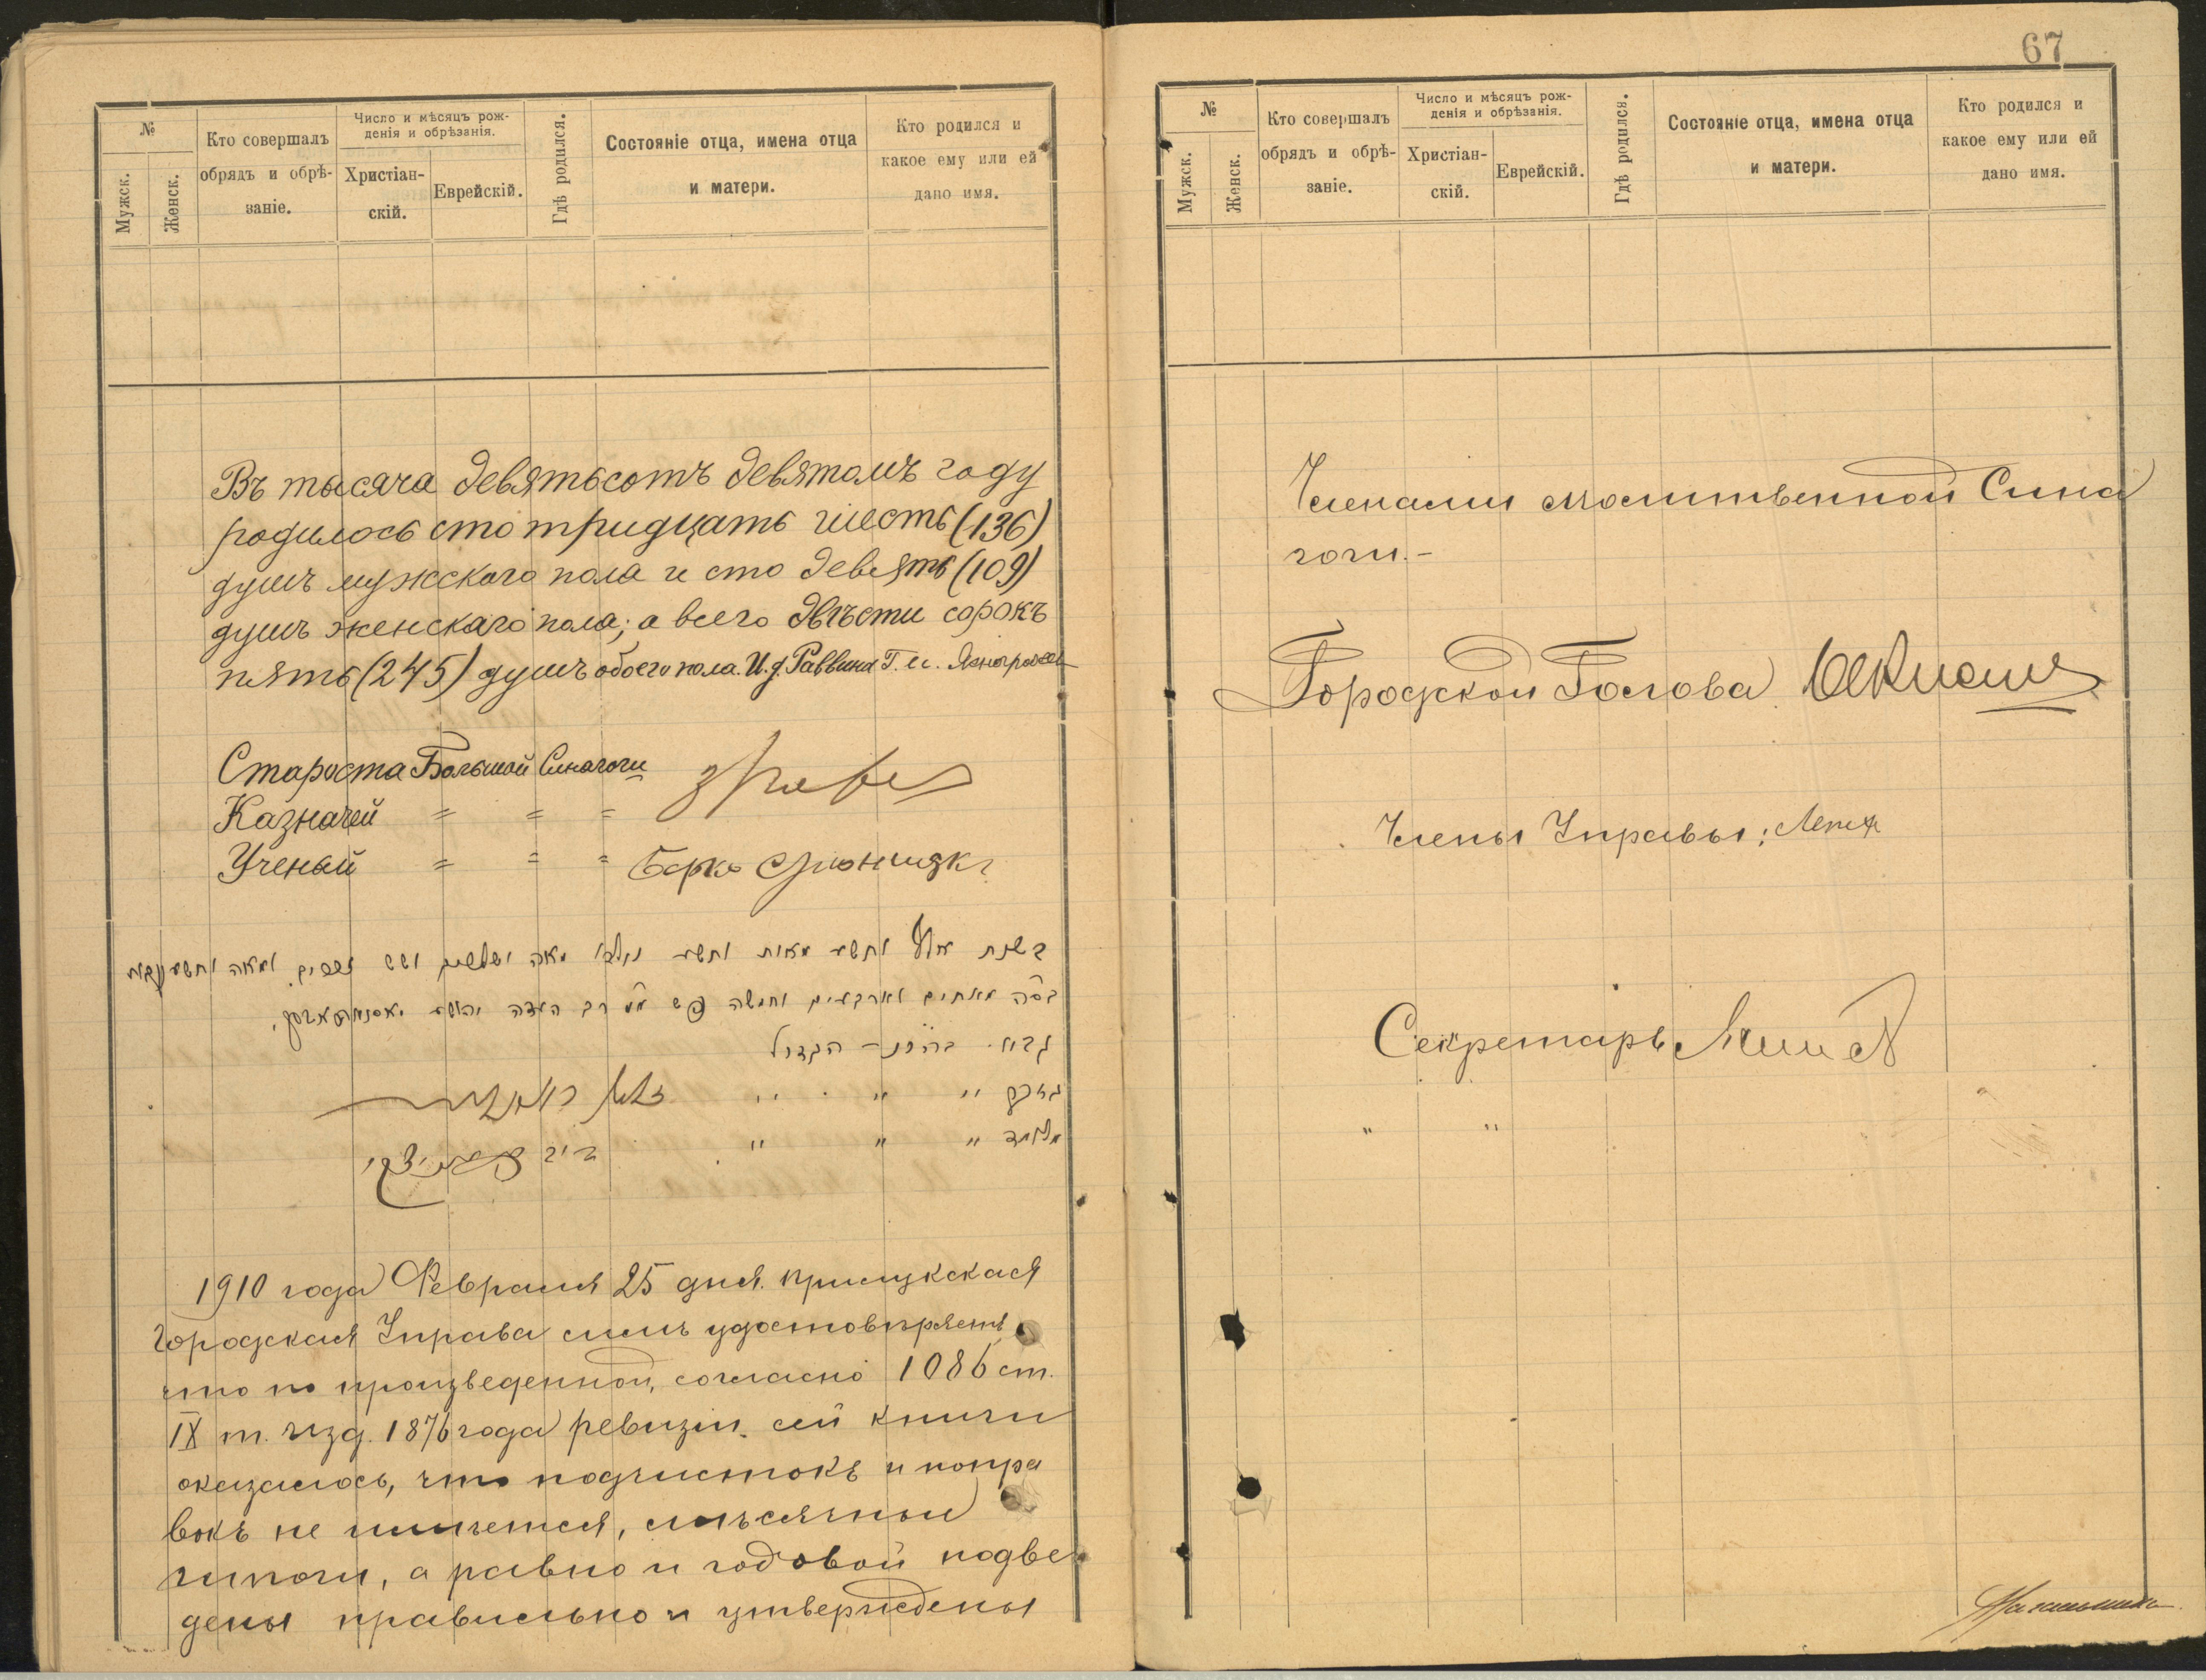 №
Мужск.
Женск.
Кто совершалъ
обрядъ и обрѣ-
заніе.
Число и мѣсяцъ рож-
денія и обрѣзанія.
Христіан-
скій.
Еврейскій.
Гдѣ родился.
Состояніе отца, имена отца
и матери.
Кто родился и
какое ему или ей
дано имя.
Въ тысяча девятьсотъ девятомъ году
родилось сто тридцать шесть (136)
душъ мужского пола и сто девять (109)
душъ женскаго пола; а всего двѣсти сорокъ
пять (245) душъ обоего пола. И. д. Раввина Г. М.
Староста Большой Синагоги
Казначей = = =
Ученый = = = Берко
בשנת אלף ותשע מאות ותשע נולדו מאה ושלשים ושש זכרים ומאה ותשע נקבות
בס״ה מאתים וארבעים וחמשה נפש
גבאי הגדול
״ ״ ״
מלמד ״ ״ ״
1910 года Февраля 25 дня. Прилукская
Городская Управа симъ удостовѣряетъ,
что по произведенной, согласно 1086 ст.
IX т. изд. 1876 года ревизіи сей книги
оказалось, что подчистокъ и попра
вокъ не имѣется, мѣсячные
итоги, а равно и годовой подве
дены правильно и утверждены
67
№
Мужск.
Женск.
Кто совершалъ
обрядъ и обрѣ-
заніе.
Число и мѣсяцъ рож-
денія и обрѣзанія.
Христіан-
скій.
Еврейскій.
Гдѣ родился.
Состояніе отца, имена отца
и матери.
Кто родился и
какое ему или ей
дано имя.
Членами молитвенной Сина
гоги.-
Городской Голова
Члены Управы:
Секретарь
" "